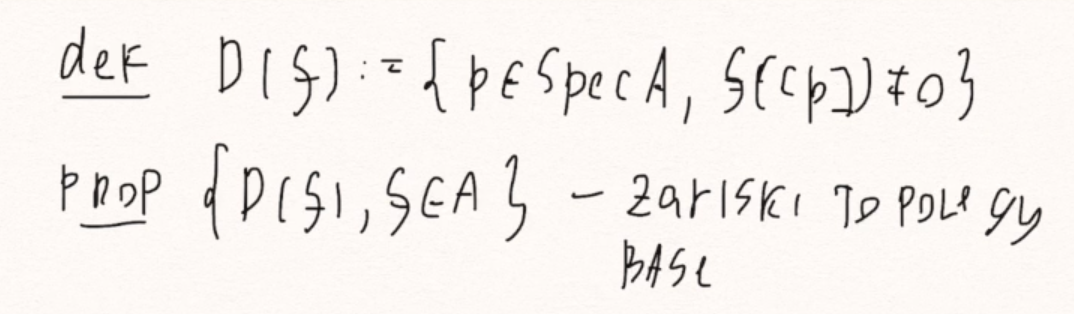 def D(f) := {p ∈ Spec A, f([p]) ≠ 0}
PROP {D(f), f ∈ A} - Zariski TOPOLOGY
BASE